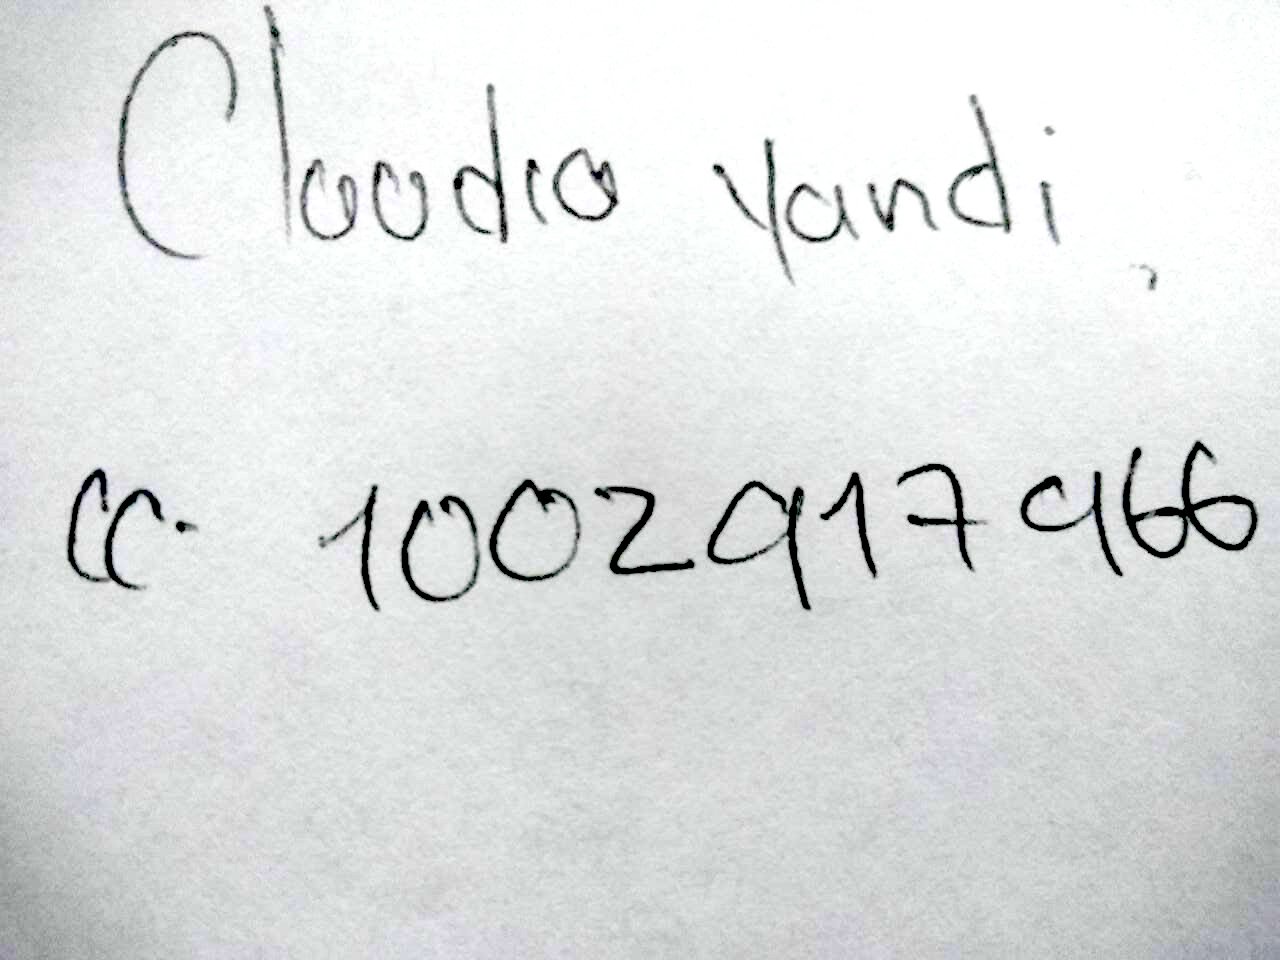 Claudia yandi
CC. 1002917966